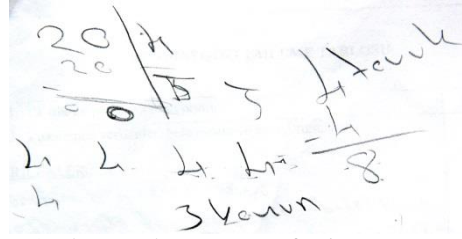 20 | 4
20 | 5
0
3 4 tavuk
4 4 4 4 = 4
8
4
3 kavun